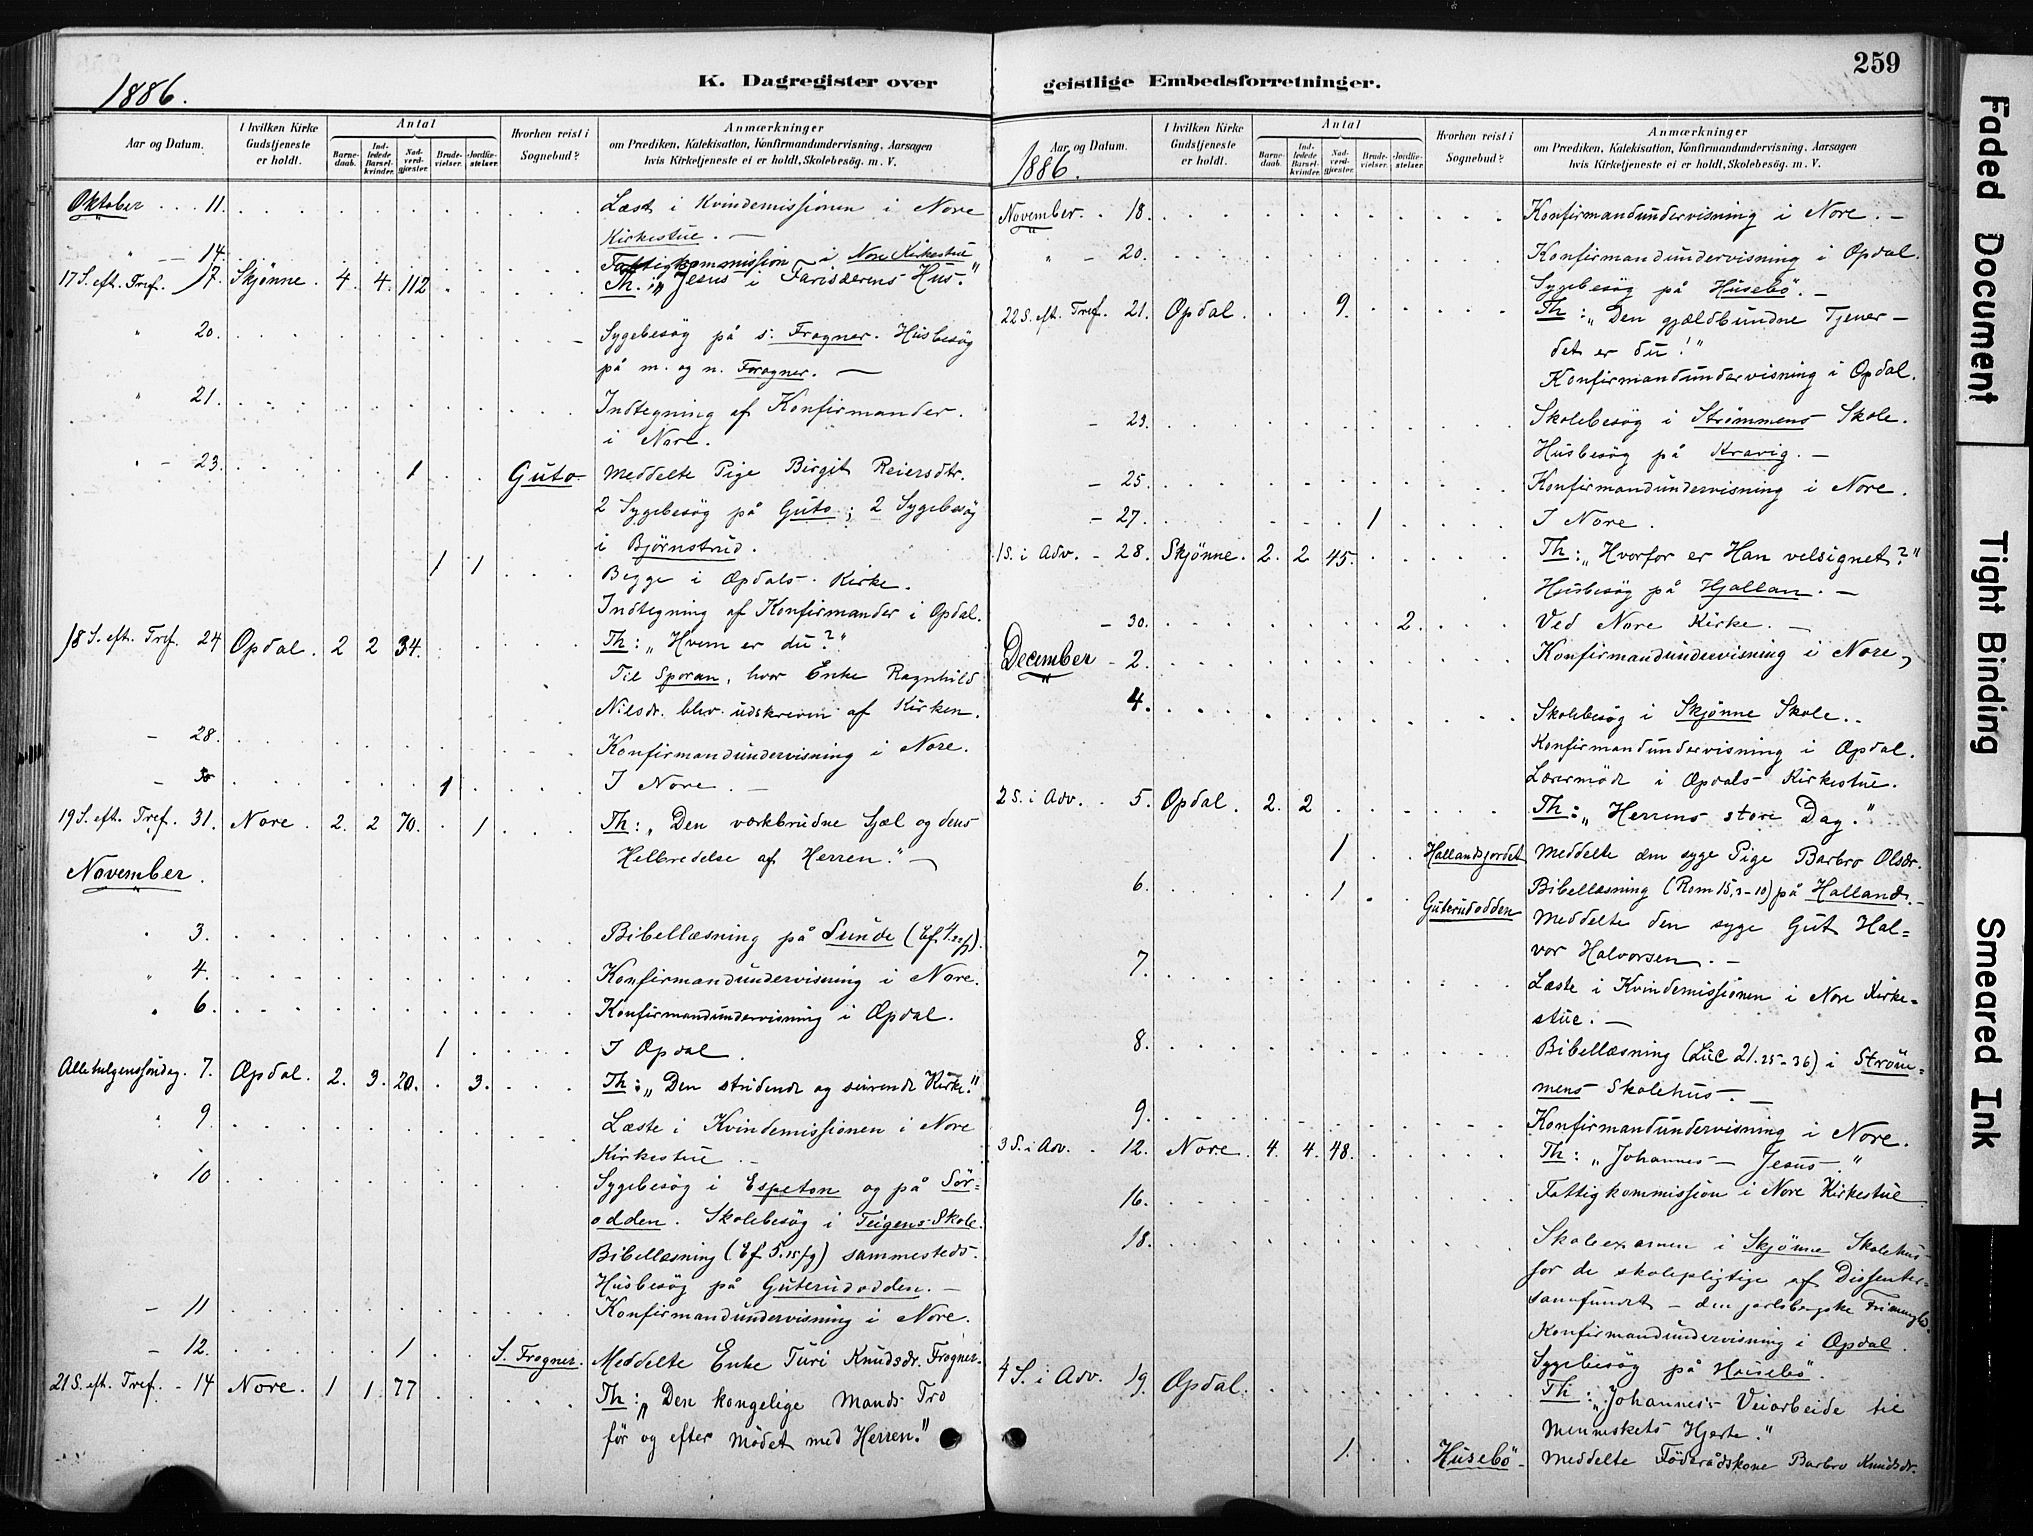 1886.
K. Dagregister over
Aar og Datum.
I hvilken Kirke Gudstjeneste er holdt.
Antal
Barnedaab.
Indledede Barselkvinder.
Nadverdgjæster.
Brudevielser.
Jordfæstelser.
Hvorhen reist i Sognebud?
Anmærkninger
om Prædiken, Katekisation, Konfirmandundervisning, Aarsagen
hvis Kirketjeneste ei er holdt, Skolebesög. m. V.
Oktober 11. Læst i Kvindemissionen i Nore
Kirkestue. —
" — 14. Fattigkommission i Nore Kirkestue
17 S. eft. Tref. 17. Skjønne. 4. 4. 112 Th.: „Jesus i Farisæerens Hus."
" 20. Sygebesøg på s. Frogner. Husbesøg
på m. og n. Frogner. —
" 21. Indtegning af Konfirmander.
i Nore.
" — 23. 1 Guto Meddelte Pige Birgit Reiersdtr.
2 Sygebesøg på Guto; 2 Sygebesøg
i Bjørnstrud.
1 1 Begge i Opdals Kirke.
Indtegning af Konfirmander i Opdal.
18 S. eft. Tref. 24 Opdal. 2 2 34. Th: „Hvem er du?"
Til Sporan, hvor Enke Ragnhild
Nilsdr. blev udskreven af Kirken.
— 28. Konfirmandundervisning i Nore.
— 30 1 I Nore. —
19 S. eft. Tref. 31. Nore. 2. 2 70. 1 Th: „Den værkbrudne Sjæl og dens
Helbredelse af Herren." —
November.
" 3. Bibellæsning på Sunde (Ef. 1.22 fg).
" 4. Konfirmandundervisning i Nore.
" 6. Konfirmandundervisning i Opdal.
1 I Opdal.
Allehelgenssöndag. 7. Opdal. 2. 3. 20. 3. Th: „Den stridende og seirende Kirke."
" 9. Læste i Kvindemissionen i Nore
Kirkestue —
" 10 Sygebesøg i Espeton og på Sör-
odden. Skolebesøg i Teigens Skole.
Bibellæsning (Ef 5.15 fg) sammesteds.
Husbesøg på Guterudodden. —
— 11 Konfirmandundervisning i Nore.
— 12. 1 S. Frogner. Meddelte Enke Turi Knudsdr. Frogner.
21 S. eft. Tref. — 14 Nore. 1 1. 77 Th: „Den kongelige Mands Tro
før og efter Mødet med Herren."
259
geistlige Embedsforretninger.
Aar og Datum.
1886.
I hvilken Kirke Gudstjeneste er holdt.
Antal
Barnedaab.
Indledede Barselkvinder.
Nadverdgjæster.
Brudevielser.
Jordfæstelser.
Hvorhen reist i Sognebud?
Anmærkninger
om Prædiken, Katekisation, Konfirmandundervisning, Aarsagen
hvis Kirketjeneste ei er holdt, Skolebesög. m. V.
November. 18. Konfirmandundervisning i Nore. —
" — 20. Konfirmandundervisning i Opdal.
Sygebesøg på Husebö. —
22 S. eft. Tref. 21. Opdal. 9. Th: „Den gjældbundne Tjener —
det er du!"
Konfirmandundervisning i Opdal.
— 23. Skolebesøg i Strømmens Skole.
Husbesøg på Kravig. —
— 25. Konfirmandundervisning i Nore.
— 27. 1 I Nore.
1 S. i Adv. — 28. Skjønne. 2. 2 45. Th: „Hvorfor er Han velsignet?"
Husbesøg på Hjallan. —
— 30. 2. Ved Nore Kirke. —
December — 2. Konfirmandundervisning i Nore,
" 4. Skolebesøg i Skjønne Skole.
Konfirmandundervisning i Opdal.
Lærermøde i Opdals Kirkestue.
2 S. i Adv. 5. Opdal. 2. 2 Th: „Herrens store Dag."
1 Hallandsjordet Meddelte den syge Pige Barbro Olsdr.
6. Bibellæsning (Rom 15,3-10) på Halland. —
1 Guterudodden Meddelte den syge Gut Hal-
vor Halvorsen. —
7. Læste i Kvindemissionen i Nore Kirke-
stue. —
8. Bibellæsning (Luc 21.25-36) i Strøm-
mens Skolehus. —
9. Konfirmandundervisning i Nore.
3 S. i Adv. — 12. Nore. 4. 4. 48. Th: „Johannes — Jesus."
16. Fattigkommission i Nore Kirkestue
18. Skoleexamen i Skjønne Skolehus
for de skolepligtige af Dissenter-
samfundet — den jarlsbergske Frimenighed.
Konfirmandundervisning i Opdal.
Sygebesøg på Husebö.
4 S. i Adv. 19. Opdal. Th: „Johannes's Veiarbeide til
Menneskets Hjerte."
1. Husebö. Meddelte Föderådskone Barbro Knudsdr.
Faded Document
Tight Binding
Smeared Ink